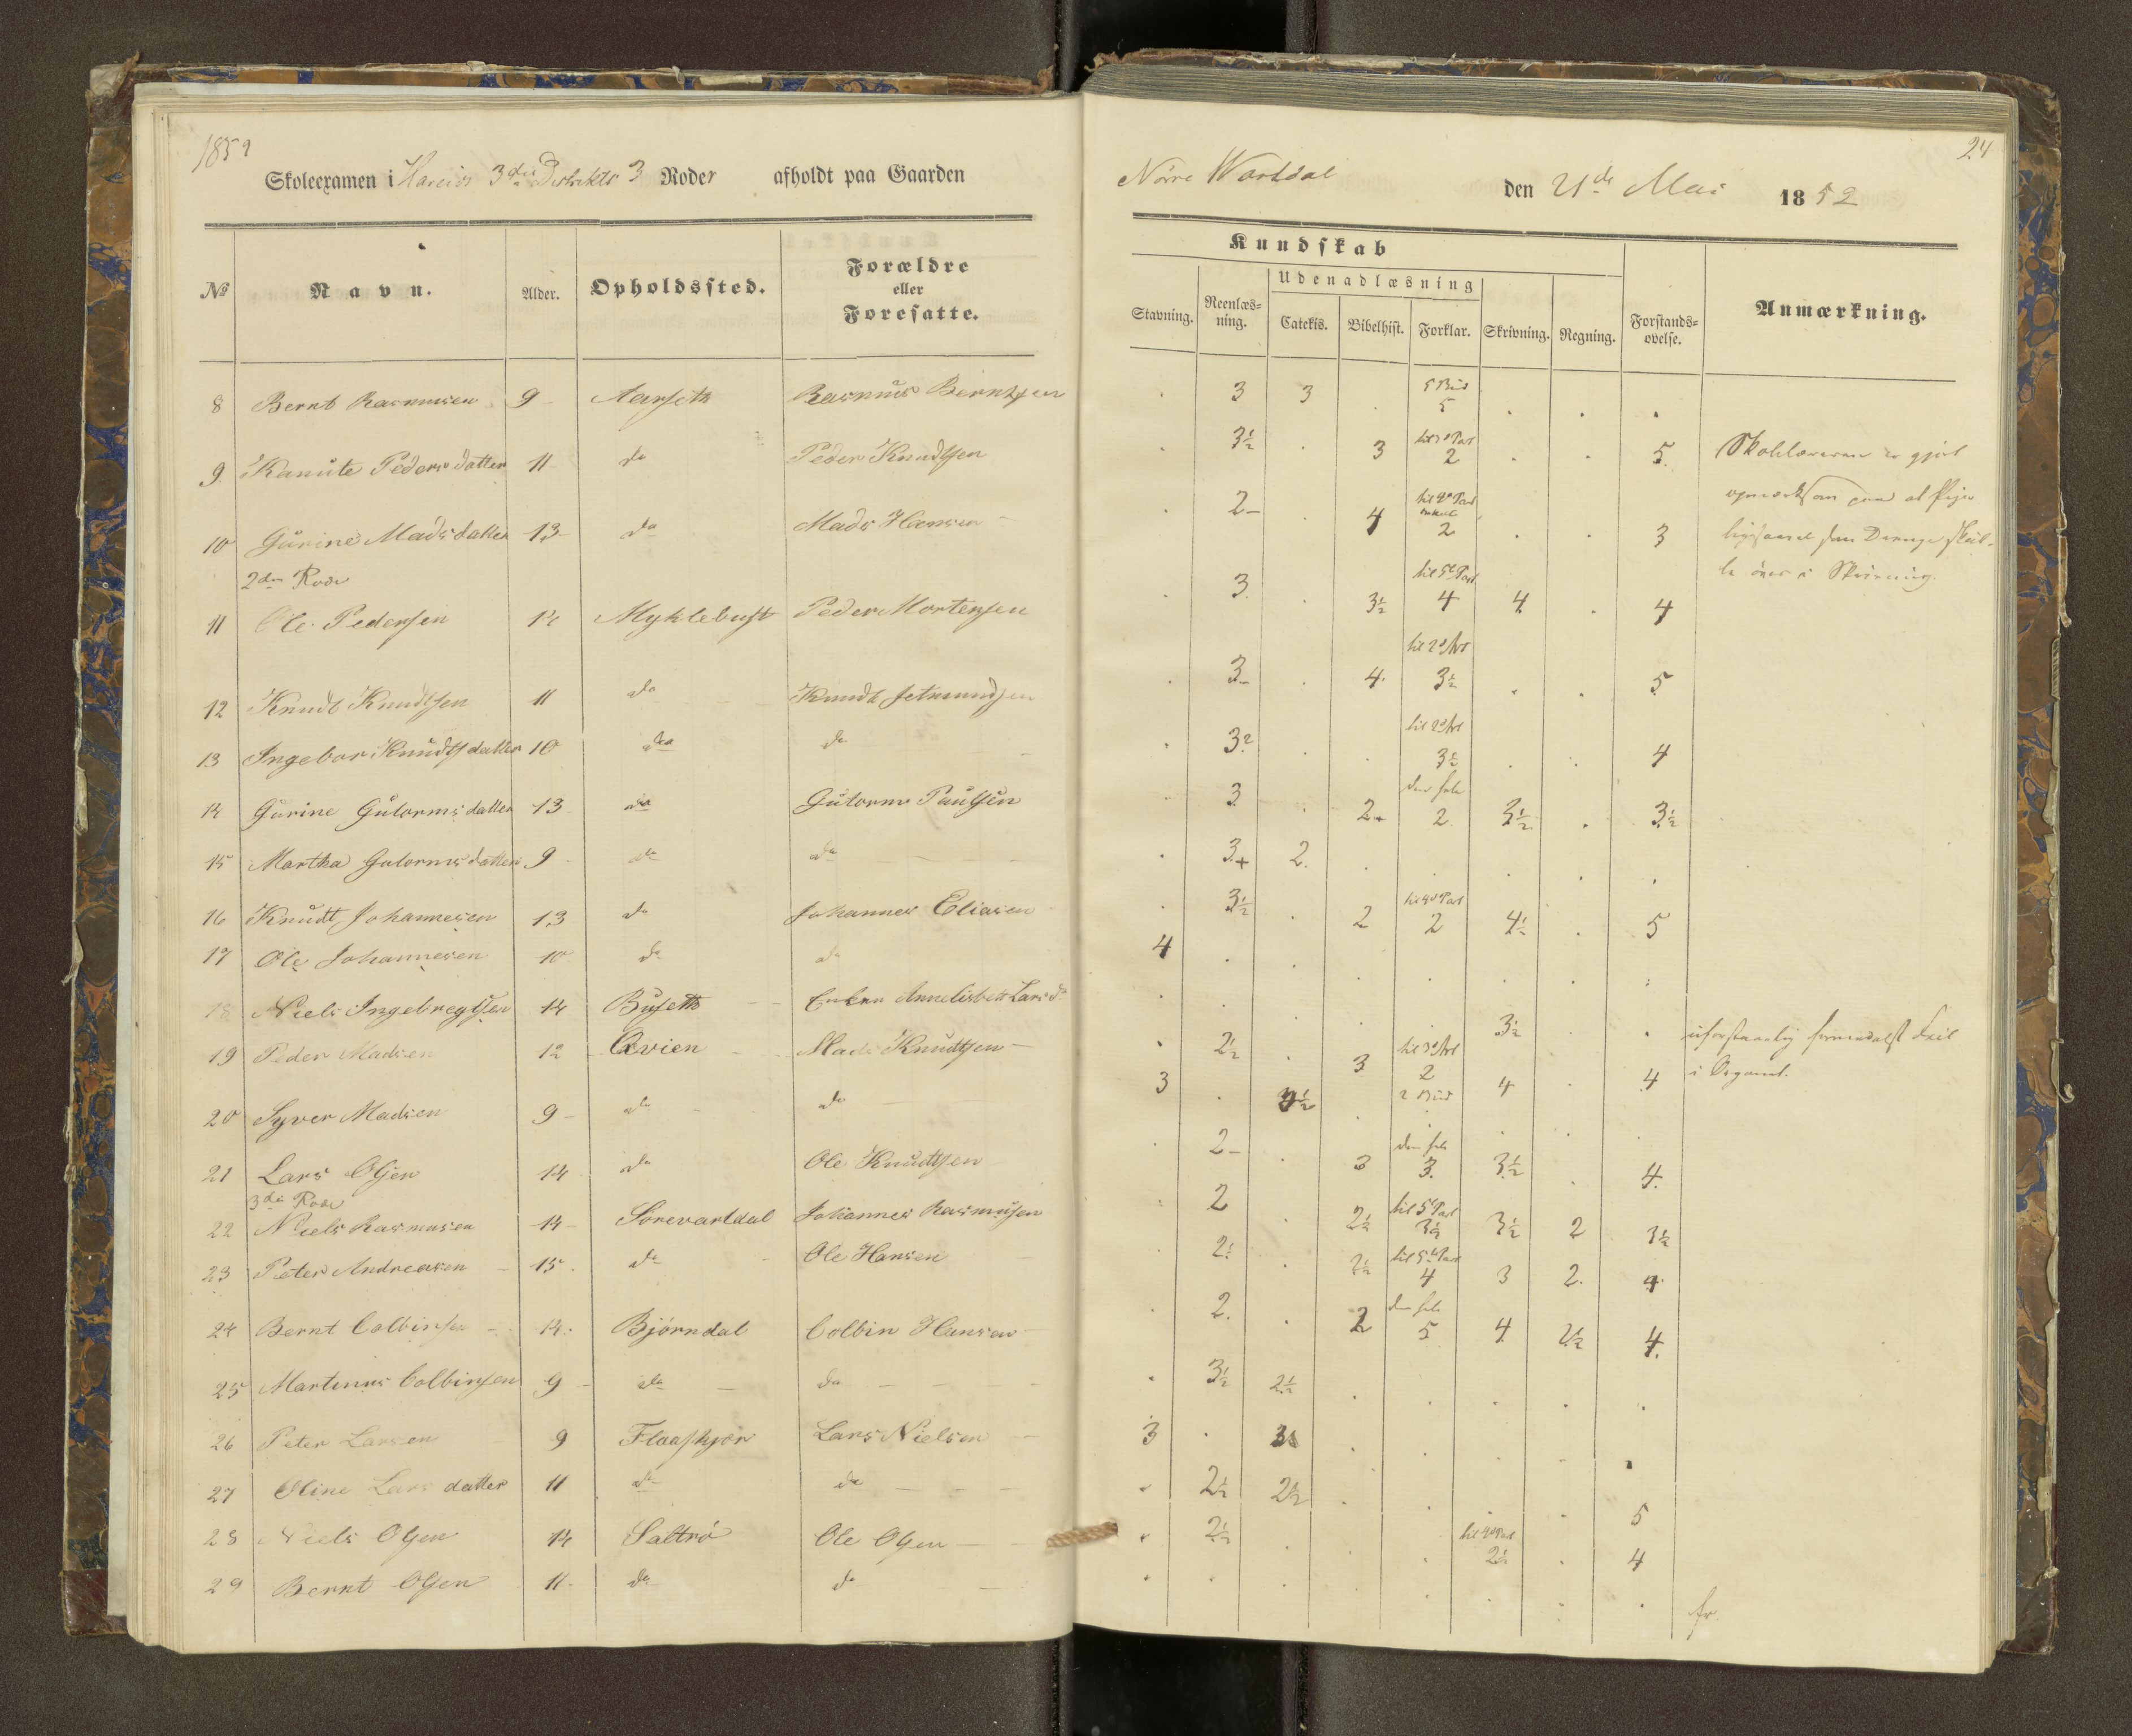 1852
24
Skoleexamen i Hareids 3die Distrikts 3 Roder afholdt paa Gaarden Nörre Wartdal den 21de Mai 1852
Kundskab
Udenadlæsning
№ Navn. Alder. Opholdssted. Forældre eller Foresatte. Stavning. Reenlæsning. Catekis. Bibelhist. Forklar. Skrivning. Regning. Forstandsøvelse. Anmærkning.
8 Bernt Rasmusen 9 Aarseth Rasmus Berntsen 3 3 5 Bud 5
9 Kanute Peders datter 11 do Peder Knudtsen 3½ 3 til 3d Part 2 5 Skolelæreren er gjort
opmærksom paa at Piger
10 Gurine Mads datter 13 do Mads Hansen 2 4 til 4d Part 2 3 ligesaavel som Drenge skul-
le öves i Skrivning.
2den Rode
11 Ole Pedersen 14 Myklebust Peder Mortensen 3 3½ til 5t Part 4 4 4
12 Knudt Knudtsen 11 do Knudt Jetmundsen 3 4 til 2d Art 3½ 5
13 Ingebor Knudts datter 10 do do 3 til 2d Art 3½ 4
14 Gurine Gutorms datter 13 do Gutorm Paulsen 3 2+ den hele 2 3½ 3½
15 Martha Gutorms datter 9 do do 3+ 2
16 Knudt Johannesen 13 do Johannes Eliasen 3½ 2 til 4d Part 2 4½ 5
17 Ole Johannesen 10 do do 4
18 Niels Ingebregtsen 14 Buseth Enken Annelisbeth Larsd 3½ uforstaaelig formedelst Feil
i Organet.
19 Peder Madsen 12 Qvien Mads Knudtsen 2½ 3 til 3d Art 2 4 4
20 Syver Madsen 9 do do 3 3½ 2 Bud
21 Lars Olsen 14 do Ole Knudtsen 2 3 den hele 3 3½ 4
3die Rode
22 Niels Rasmusen 14 Sörevartdal Johannes Rasmusen 2 2½ til 5t Part 3½ 3½ 2 3½
23 Peter Andreasen 15 do Ole Hansen 2½ 2½ til 5t Part 4 3 2 4
24 Bernt Colbinsen 14 Björndal Colbin Hansen 2 2 den hele 5 4 2½ 4
25 Martinus Colbinsen 9 do do 3½ 2½
26 Peter Larsen 9 Flaaskjær Lars Nielsen 3 3
27 Oline Lars datter 11 do do 2½ 2½ 5
28 Niels Olsen 14 Saltrö Ole Olsen 2½ til 4d Part 2½ 4
29 Bernt Olsen 11 do do